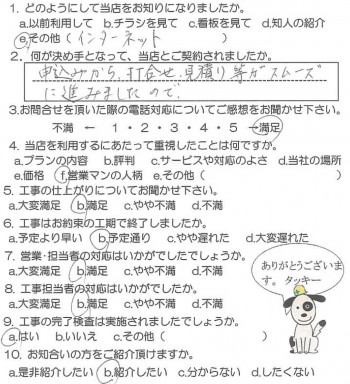 1. どのようにして当店をお知りになりましたか。
a.以前利用して b.チラシを見て c.看板を見て d.知人の紹介
e.その他( インターネット )
2. 何が決め手となって、当店とご契約されましたか。
申込みから、打合せ、見積り等がスムーズ
に進みましたので.
3.お問合せを頂いた際の電話対応についてご感想をお聞かせ下さい。
不満 ← 1・2・3・4・5 →満足
4. 当店を利用するにあたって重視したことは何ですか。
a.プランの内容 b.評判 c.サービスや対応のよさ d.当社の場所
e.価格 f.営業マンの人柄 e.その他( )
5. 工事の仕上がりについてお聞かせ下さい。
a.大変満足 b.満足 c.やや不満 d.不満
6. 工事はお約束の工期で終了しましたか。
a.予定より早い b.予定通り c.やや遅れた d.大変遅れた
7. 営業・担当者の対応はいかがでしたでしょうか。
a.大変満足 b.満足 c.やや不満 d.不満
8. 工事担当者の対応はいかがでしたか。
a.大変満足 b.満足 c.やや不満 d.不満
9. 工事の完了検査は実施されましたでしょうか。
a.はい b.いいえ c.その他( )
10. お知合いの方をご紹介頂けますか。
a.是非紹介したい b.紹介したい c.分からない d.したくない
ありがとうございま
す。タッキー